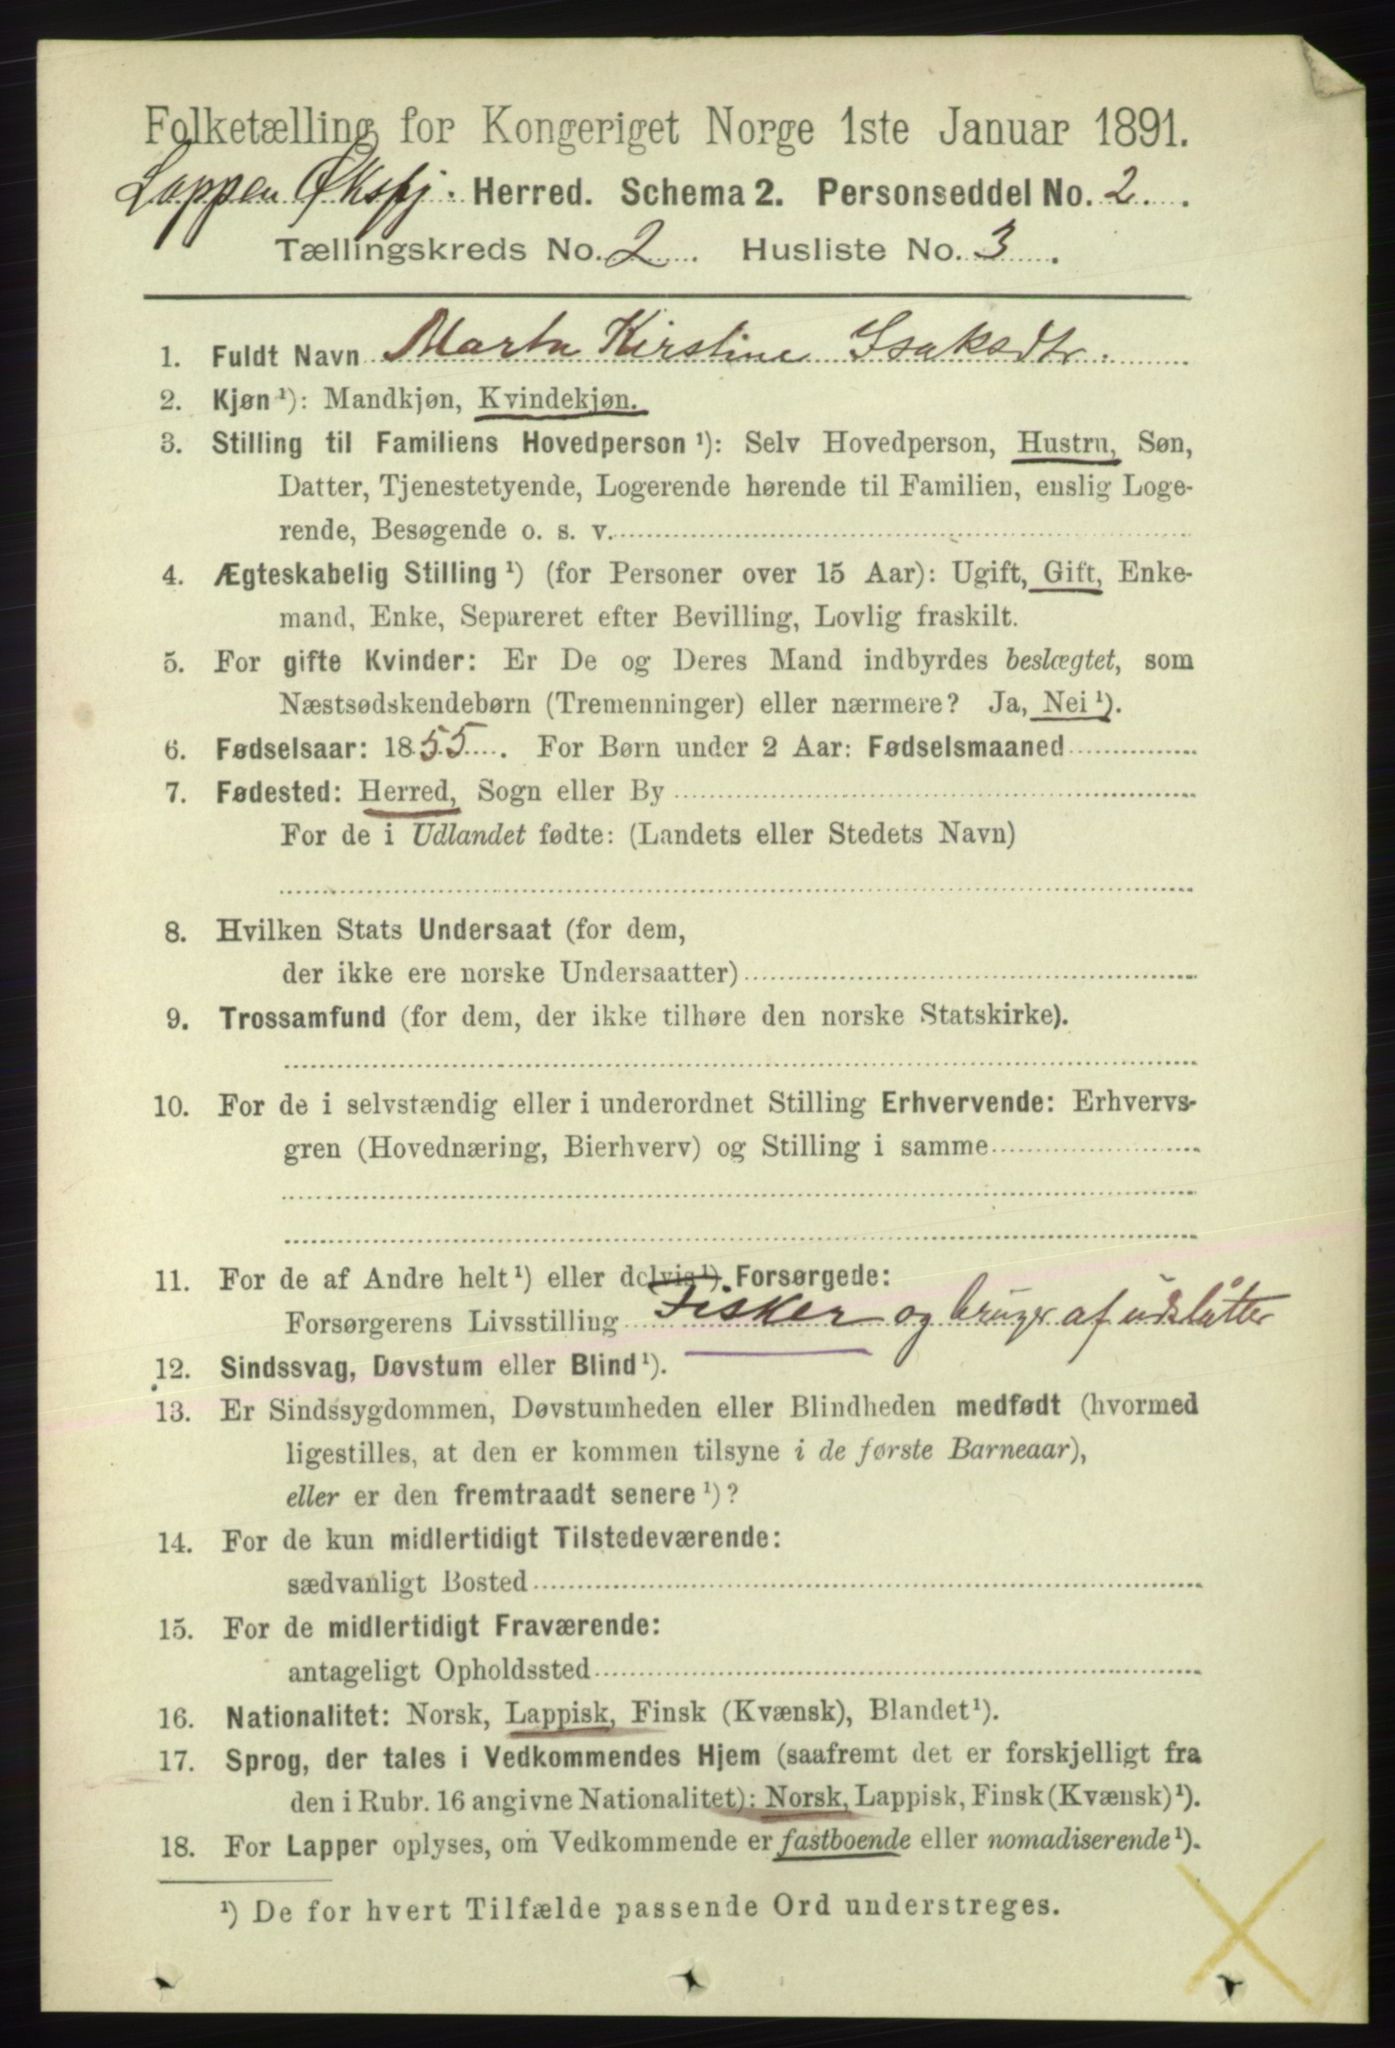 Folketælling for Kongeriget Norge 1ste Januar 1891.
Loppen Øksfj. Herred. Schema 2. Personseddel No. 2.
Tællingskreds No. 2. Husliste No. 3.
1. Fuldt Navn Marta Kirstine Isaksdtr.
2. Kjøn ¹): Mandkjøn, Kvindekjøn.
3. Stilling til Familiens Hovedperson ¹): Selv Hovedperson, Hustru, Søn,
Datter, Tjenestetyende, Logerende hørende til Familien, enslig Loge-
rende, Besøgende o. s. v.
4. Ægteskabelig Stilling ¹) (for Personer over 15 Aar): Ugift, Gift, Enke-
mand, Enke, Separeret efter Bevilling, Lovlig fraskilt.
5. For gifte Kvinder: Er De og Deres Mand indbyrdes beslægtet, som
Næstsødskendebørn (Tremenninger) eller nærmere? Ja, Nei ¹).
6. Fødselsaar: 1855. For Børn under 2 Aar: Fødselsmaaned
7. Fødested: Herred, Sogn eller By
For de i Udlandet fødte: (Landets eller Stedets Navn)
8. Hvilken Stats Undersaat (for dem,
der ikke ere norske Undersaatter)
9. Trossamfund (for dem, der ikke tilhøre den norske Statskirke).
10. For de i selvstændig eller i underordnet Stilling Erhvervende: Erhvervs-
gren (Hovednæring, Bierhverv) og Stilling i samme
11. For de af Andre helt ¹) eller delvis ¹) Forsørgede:
Forsørgerens Livsstilling Fisker og bruger af udslåtter
12. Sindssvag, Døvstum eller Blind ¹).
13. Er Sindssygdommen, Døvstumheden eller Blindheden medfødt (hvormed
ligestilles, at den er kommen tilsyne i de første Barneaar),
eller er den fremtraadt senere ¹)?
14. For de kun midlertidigt Tilstedeværende:
sædvanligt Bosted
15. For de midlertidigt Fraværende:
antageligt Opholdssted
16. Nationalitet: Norsk, Lappisk, Finsk (Kvænsk), Blandet ¹).
17. Sprog, der tales i Vedkommendes Hjem (saafremt det er forskjelligt fra
den i Rubr. 16 angivne Nationalitet): Norsk, Lappisk, Finsk (Kvænsk) ¹).
18. For Lapper oplyses, om Vedkommende er fastboende eller nomadiserende ¹).
¹) De for hvert Tilfælde passende Ord understreges.